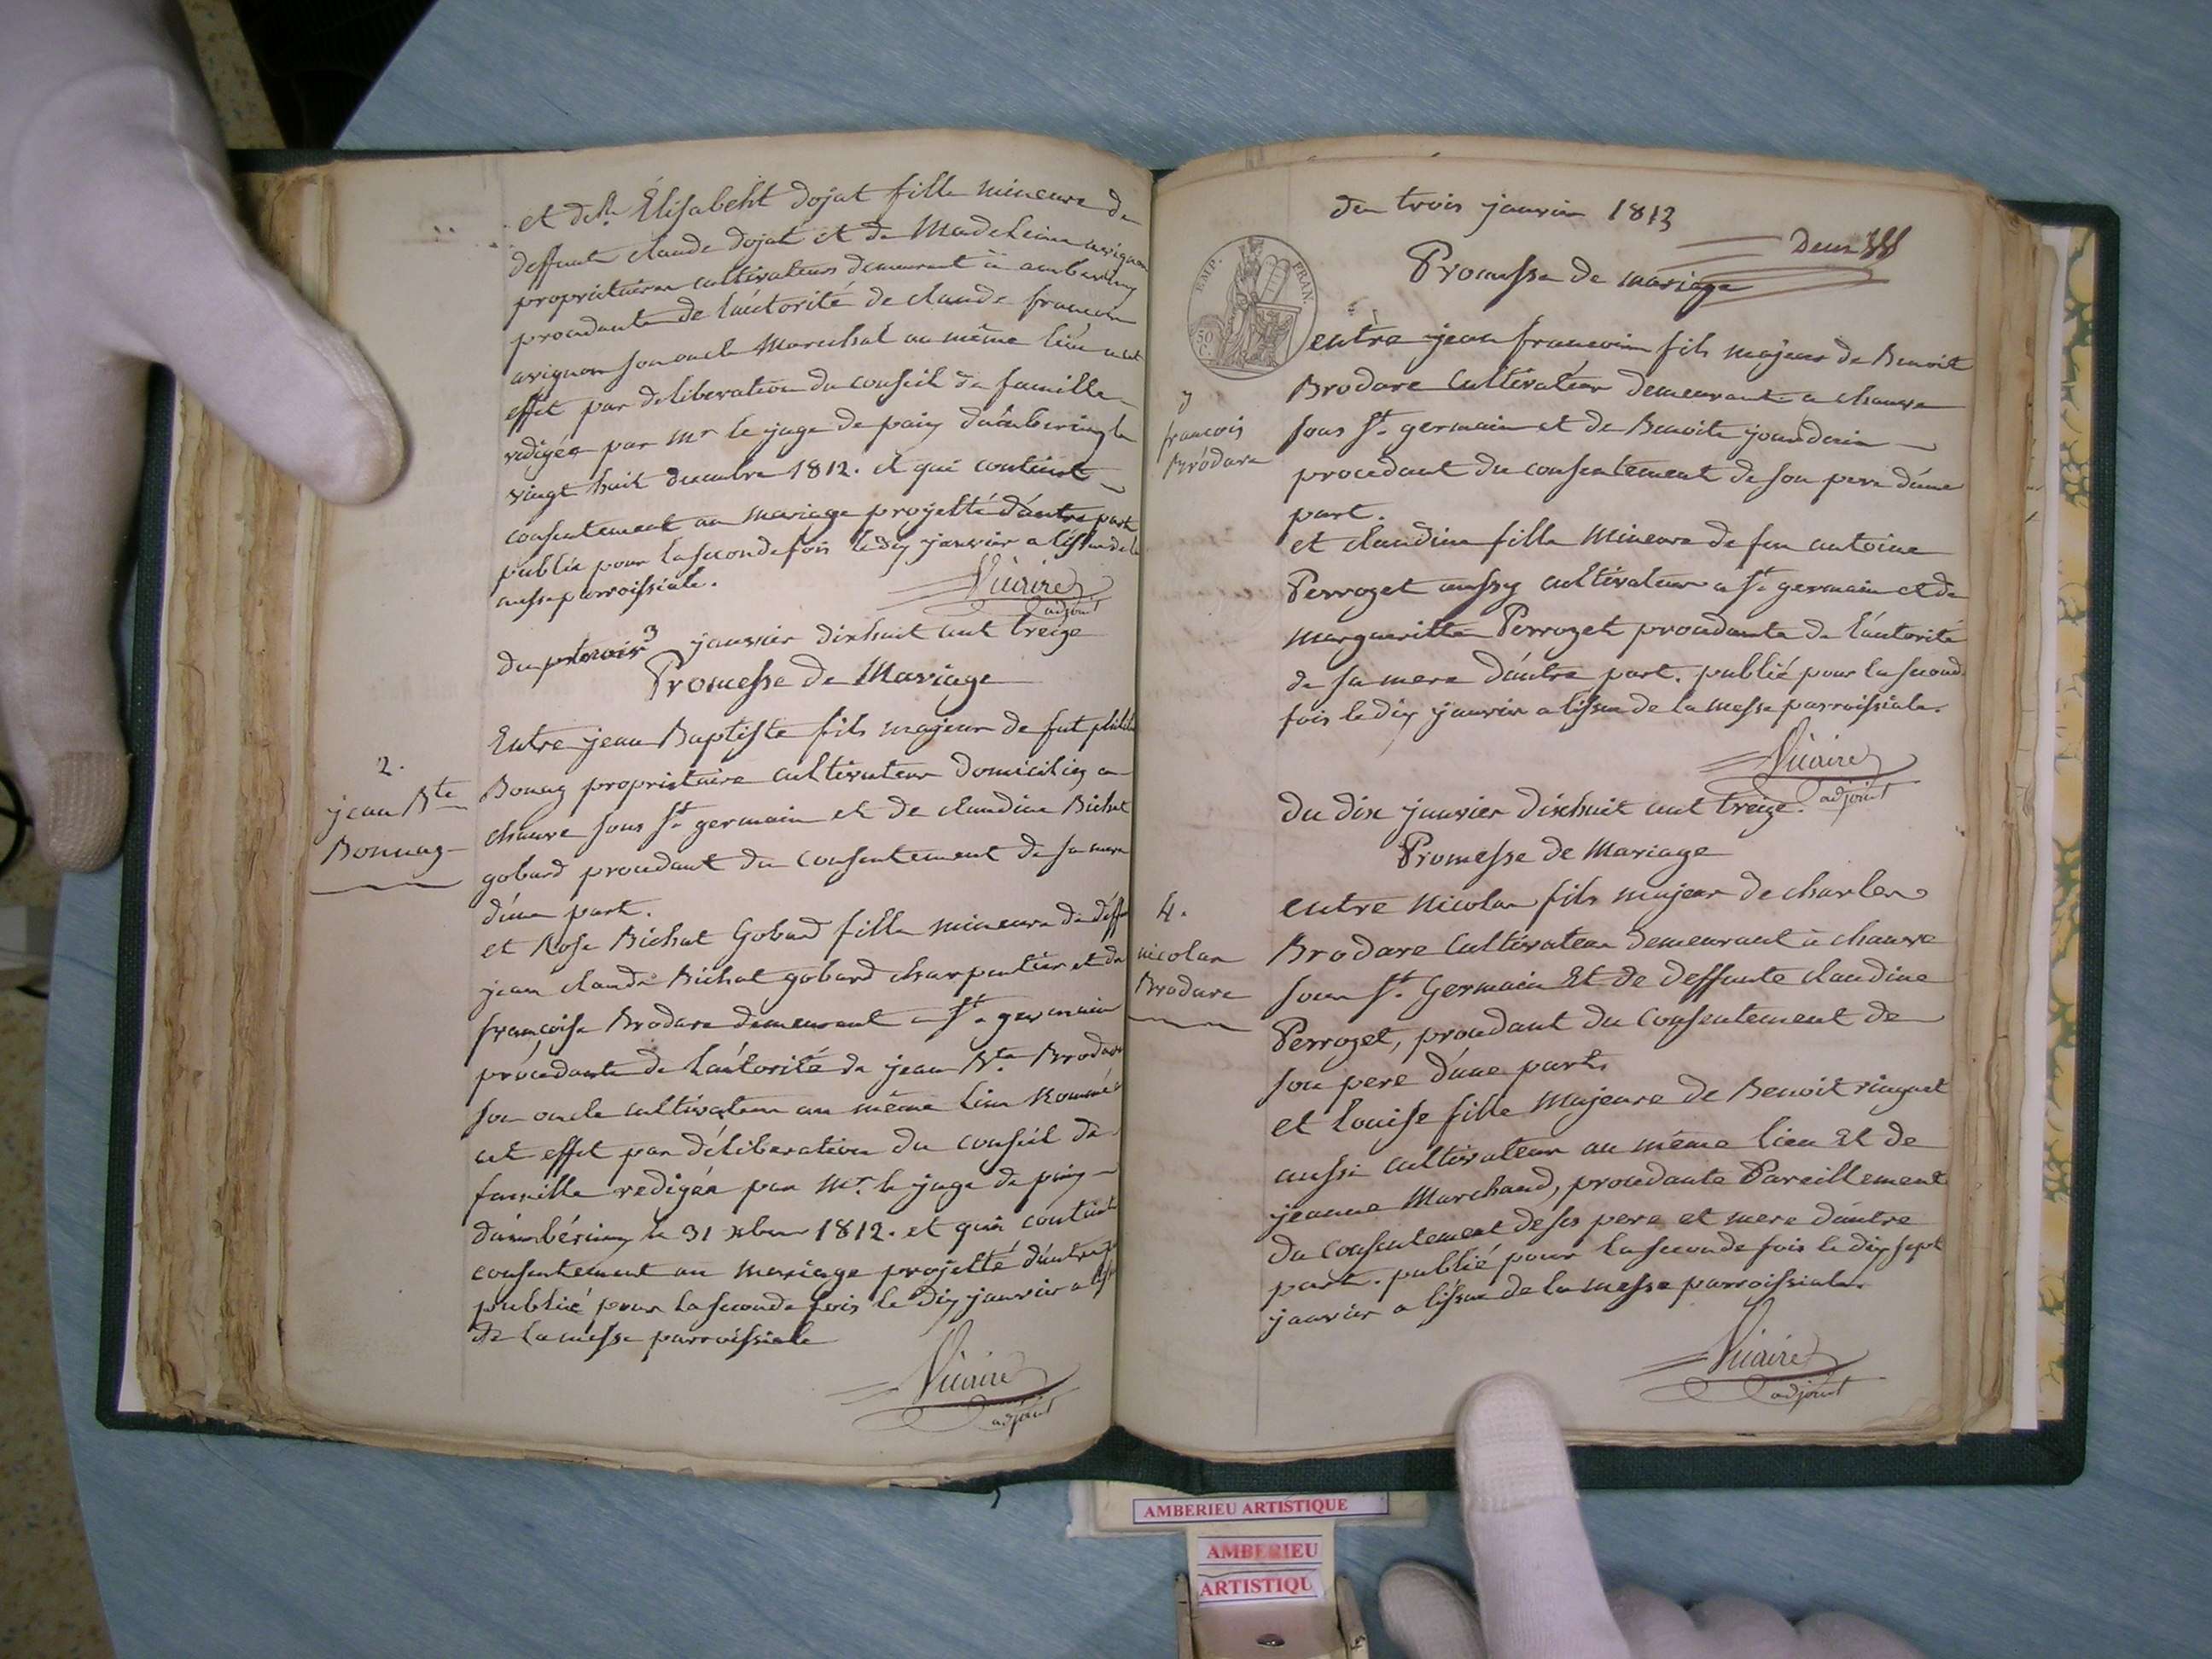 et de Élisabeht dojat fille mineure de
deffunt claude dojat et de Madeleine avignon
proprietaires cultivateurs demeurant à amberieuy
procedante de l'autorité de claude francois
avignon son oncle Marechal au même lieu a cet
effet par deliberation du conseil de famille
redigée par mr le juge de paix d'amberieux le
vingt huit decembre 1812. et qui contient
consentement au mariage projetté d'autre part
publié pour la seconde fois le dix janvier a l'issue de la
messe parroissiale.
Vicaire
adjoint
du trois 3 janvier dixhuit cent treize
Promesse de Mariage
2.
jean Bte
Bonnaz
Entre jean Baptiste fils majeur de fut
Bonaz proprietaire cultivateur domicilié a
chauve sous St germain et de claudine Bichat
gobard procedant du consentement de sa mere
d'une part.
et Rose Bichat Gobard fille mineure de deff
jean claude Bichat gobard charpentier et de
françoise Brodare demeurant a St germain
procedante de l'autorité de jean Bte Brodare
son oncle cultivateur au même lieu nommé
cet effet par déliberation du conseil de
famille redigée par Mr. le juge de paix
d'ambérieux le 31 xbre 1812. et qui contient
consentement au mariage projetté d'autre p
publié pour la seconde fois le dix janvier a l'iss
de la messe parroissiale
Vicaire
adjoint
du trois janvier 1813
Deux
Promesse de mariage
EMP. FRAN.
50 C.
3
francois
Brodare
entre jean francois fils majeur de Benoit
Brodare Cultivateur demeurant a chauve
sous St germain et de Benoite jourdain
procedant du consentement de son pere d'une
part.
et claudine fille mineure de feu antoine
Perrozet aussy cultivateur a St germain et de
margueritte Perrozet procedante de l'autorité
de sa mere d'autre part. publié pour la second
fois le dix janvier a l'issue de la messe parroissiale.
Vicaire
adjoint
du dix janvier dixhuit cent treize.
Promesse de Mariage
4.
nicolas
Brodare
entre Nicolas fils majeur de charles
Brodare Cultivateur demeurant à chauve
sous St. Germain Et de deffunte claudine
Perrozet, procedant du Consentement de
son pere d'une part.
et louise fille Majeure de Benoit vinguet
aussi cultivateur au même lieu Et de
jeanne Marchand, procedante Pareillement
du Consentement de ses pere et mere d'autre
part. publié pour la seconde fois le dix sept
janvier a l'issue de la messe parroissiale.
Vicaire
adjoint
AMBERIEU ARTISTIQUE
AMBERIEU
ARTISTIQU